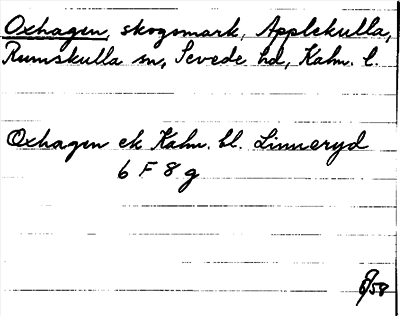 Oxhagen, skogsmark, Applekulla,
Rumskulla sn, Sevede hd, Kalm. l.
Oxhagen ek Kalm. bl. Linneryd
6 F 8 g
/58